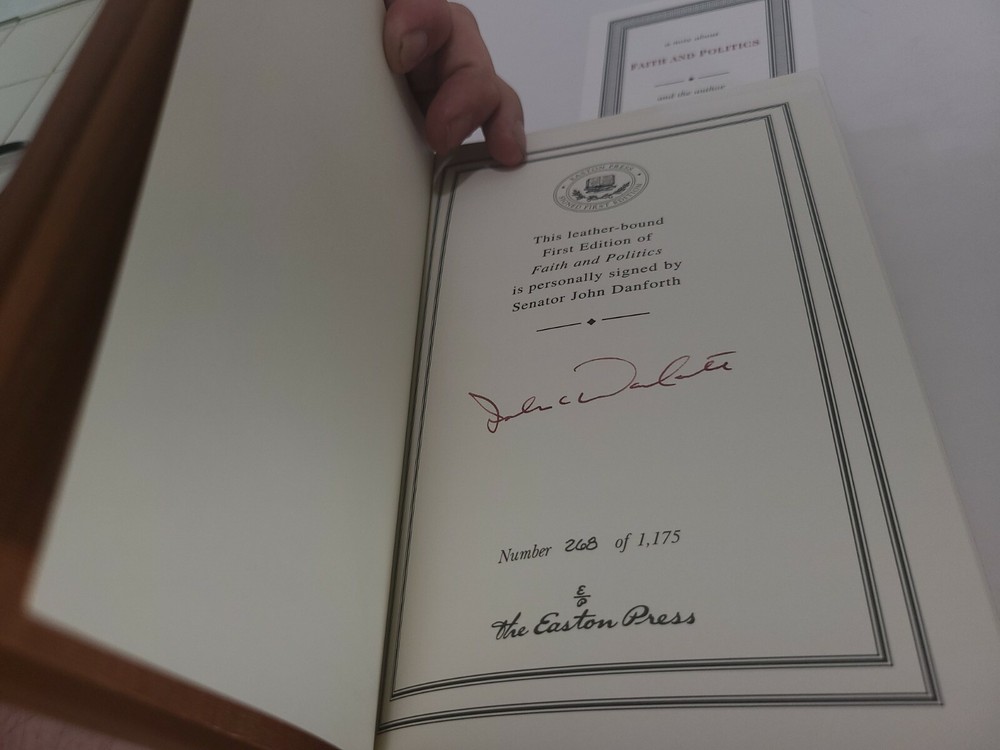 a note about
FAITH AND POLITICS
and the author
EASTON PRESS
SIGNED FIRST EDITION
This leather-bound
First Edition of
Faith and Politics
is personally signed by
Senator John Danforth
John C Danforth
Number 268 of 1,175
E
P
the Easton Press